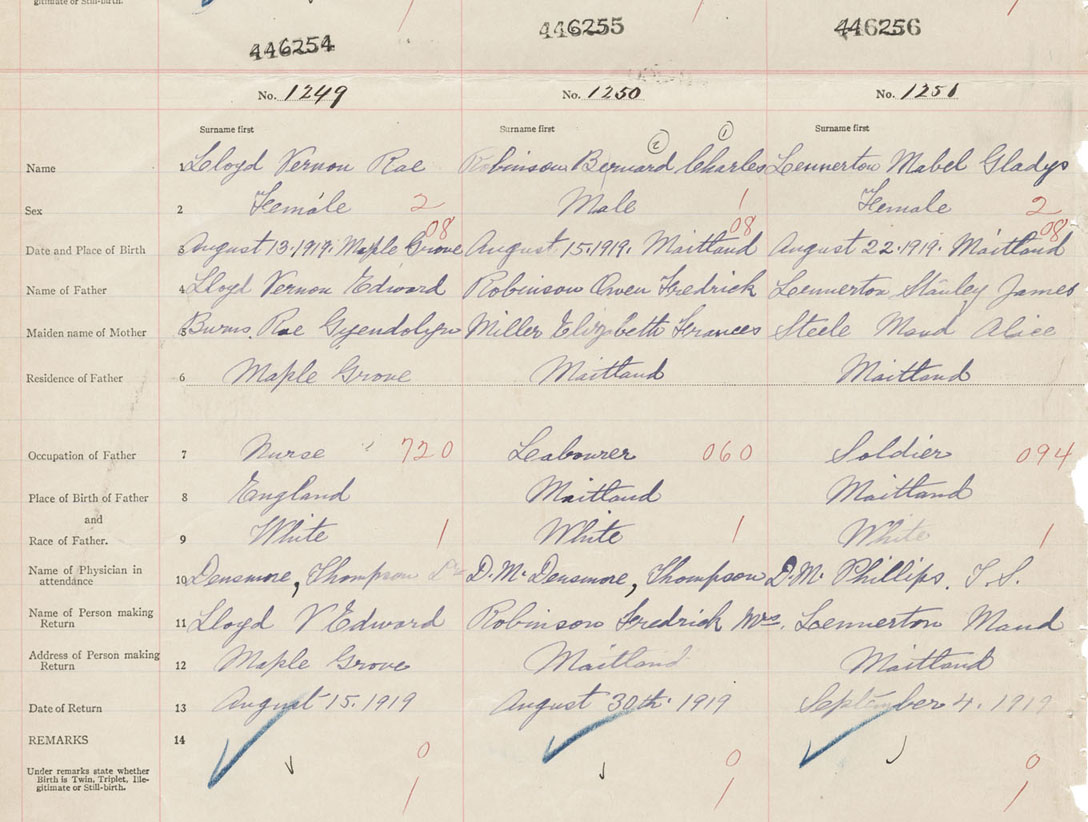 gitimate or Still-birth. 1 1 1
446254 446255 446256
No. 1249 No. 1250 No. 1251
Surname first Surname first Surname first
② ①
Name 1 Lloyd Vernon Rae Robinson Bernard Charles Lennerton Mabel Gladys
Sex 2 Female 2 Male 1 Female 2
08 08 08
Date and Place of Birth 3 August 13.1919. Maple Grove August 15.1919. Maitland August 22.1919. Maitland
Name of Father 4 Lloyd Vernon Edward Robinson Owen Fredrick Lennerton Stanley James
Maiden name of Mother 5 Burns Rae Gwendolyn Miller Elizabeth Frances Steele Maud Alice
Residence of Father 6 Maple Grove Maitland Maitland
Occupation of Father 7 Nurse 720 Leabourer 060 Soldier 094
Place of Birth of Father 8 England Maitland Maitland
and
Race of Father. 9 White 1 White 1 White 1
Name of Physician in
attendance 10 Densmore, Thompson D. Mc Densmore, Thompson D. Mc Phillips, T. S.
Name of Person making
Return 11 Lloyd V Edward Robinson Fredrick Mrs. Lennerton Maud
Address of Person making
Return 12 Maple Grove Maitland Maitland
Date of Return 13 August 15.1919 August 30th. 1919 September 4. 1919
REMARKS 14 0 0 0
Under remarks state whether
Birth is Twin, Triplet, Ille-
gitimate or Still-birth. 1 1 1